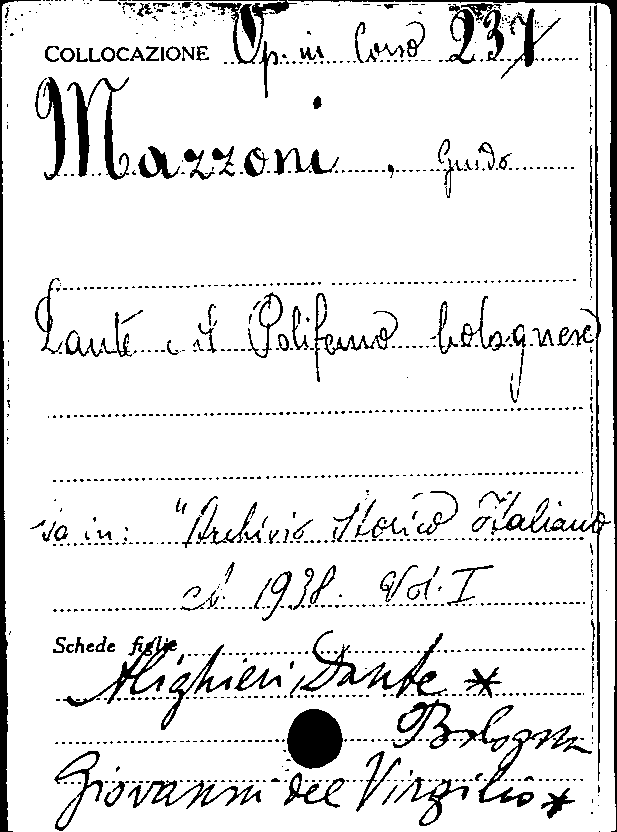 COLLOCAZIONE Op. in Corso 237
Mazzoni, Guido
Dante e il Polifemo bolognese
sta in: "Archivio Storico Italiano
A. 1938. Vol. I
Schede figlie
Alighieri, Dante *
Bologna
Giovanni del Virgilio *